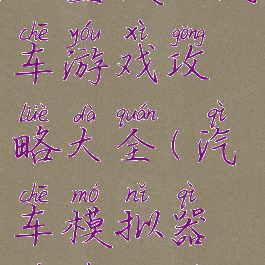 chē yóu xì gōng
车游戏攻
lüè dà quán qì
略大全(汽
chē mó nǐ qì
车模拟器